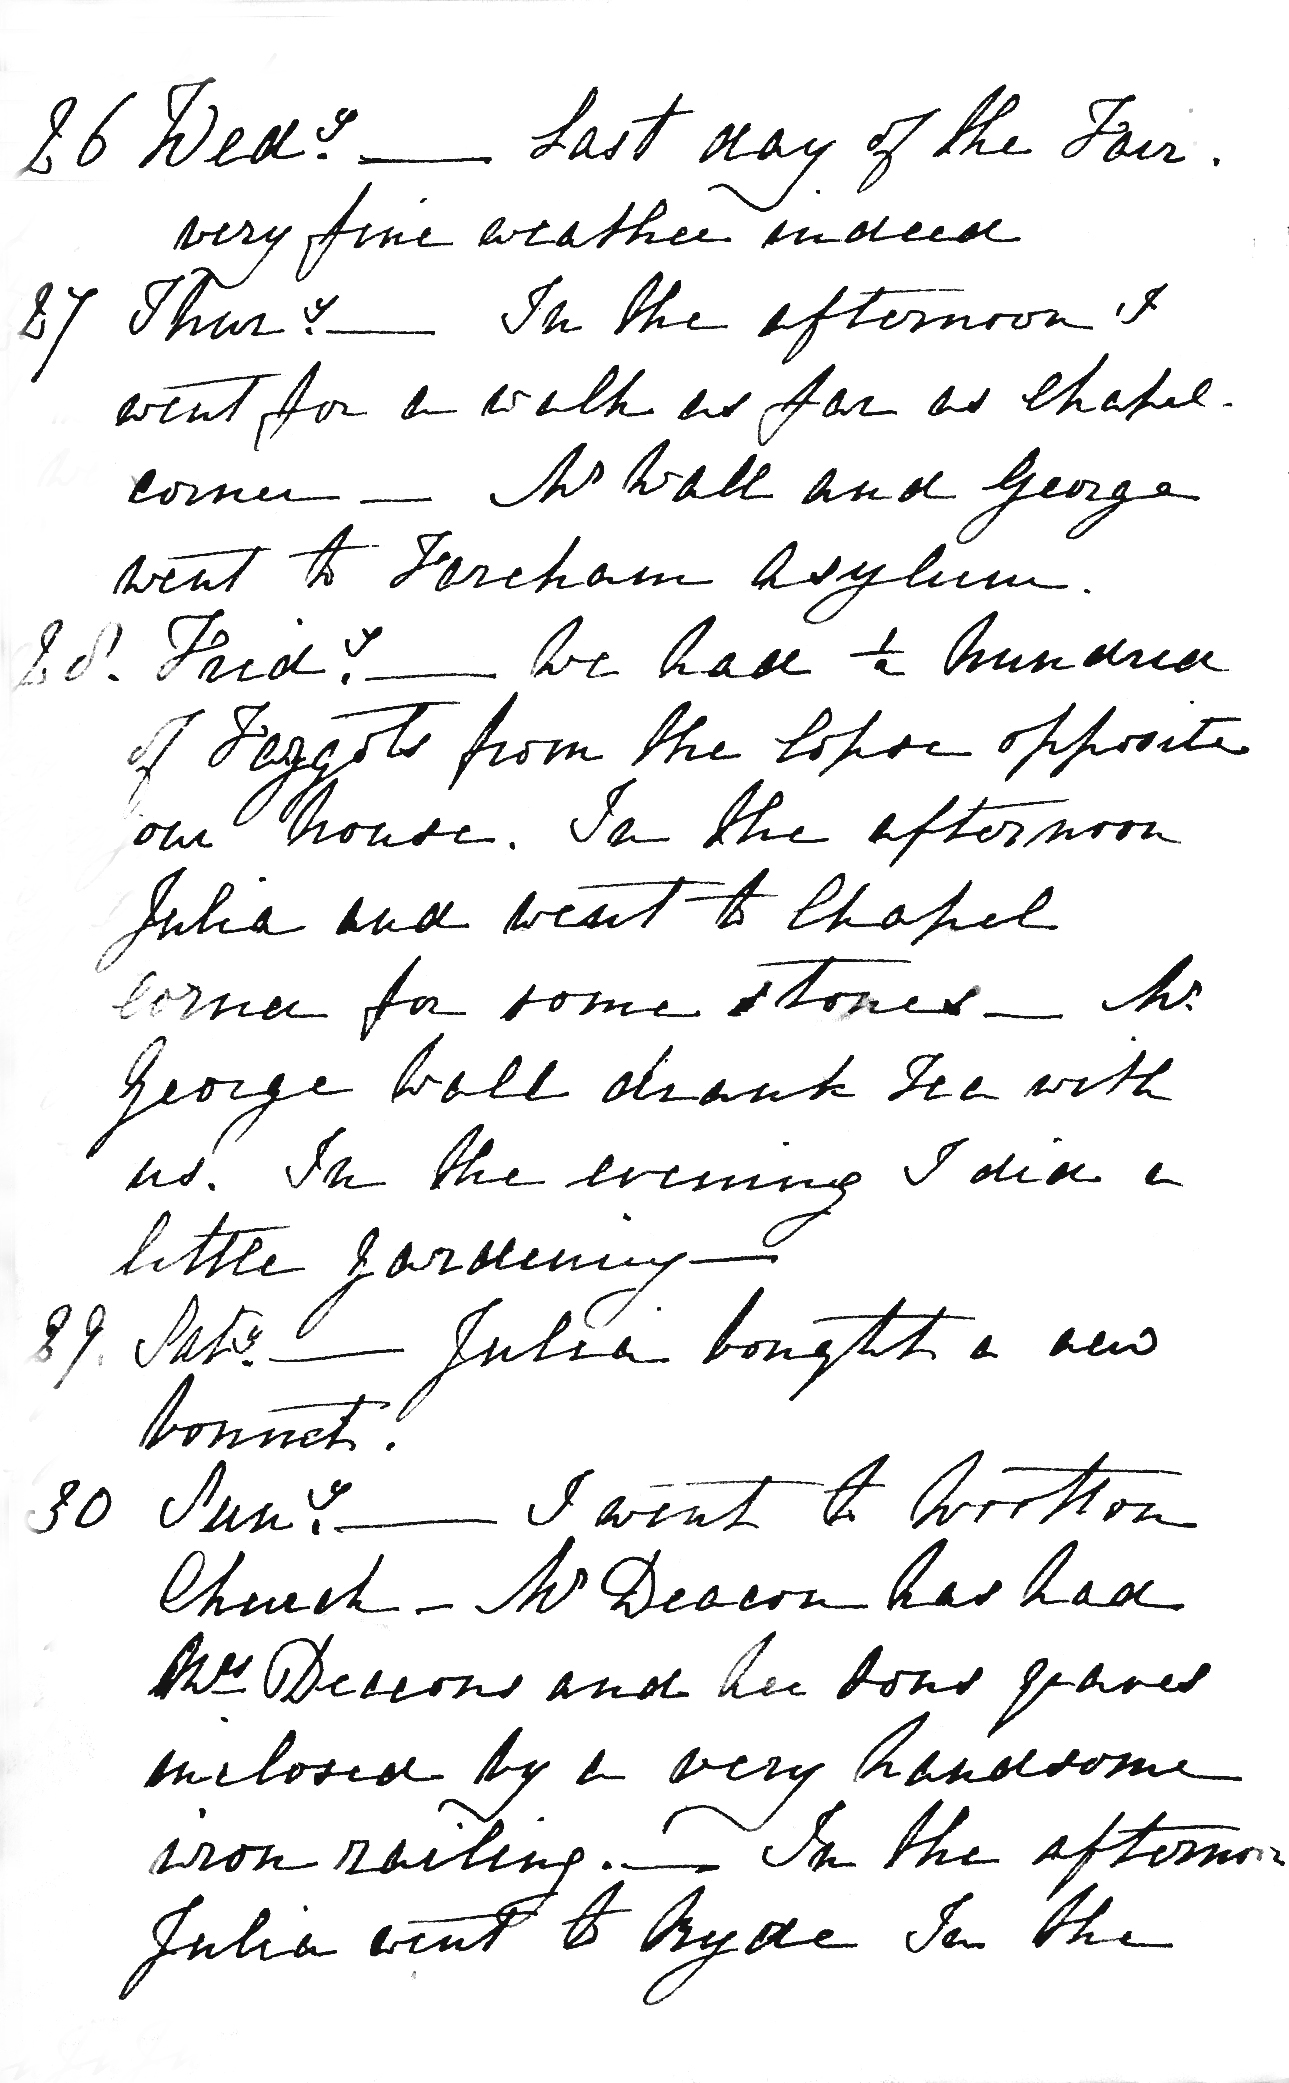 26 Wedy. — Last day of the Fair.
very fine weather indeed
27 Thury. — In the afternoon I
went for a walk as far as Chapel-
corner — Mr Wall and George
went to Fareham Asylum.
28. Fridy. — We had ½ hundred
of Faggots from the Copse opposite
our house. In the afternoon
Julia and went to Chapel
Corner for some stones — Mr.
George Wall drank Tea with
us. In the evening I did a
little gardening —
29. Saty. — Julia bought a new
bonnet.
30 Suny. — I went to Wootton
Church — Mr Deacon has had
Mrs Deacons and her sons graves
inclosed by a very handsome
iron railing. — In the afternoon
Julia went to Ryde In the